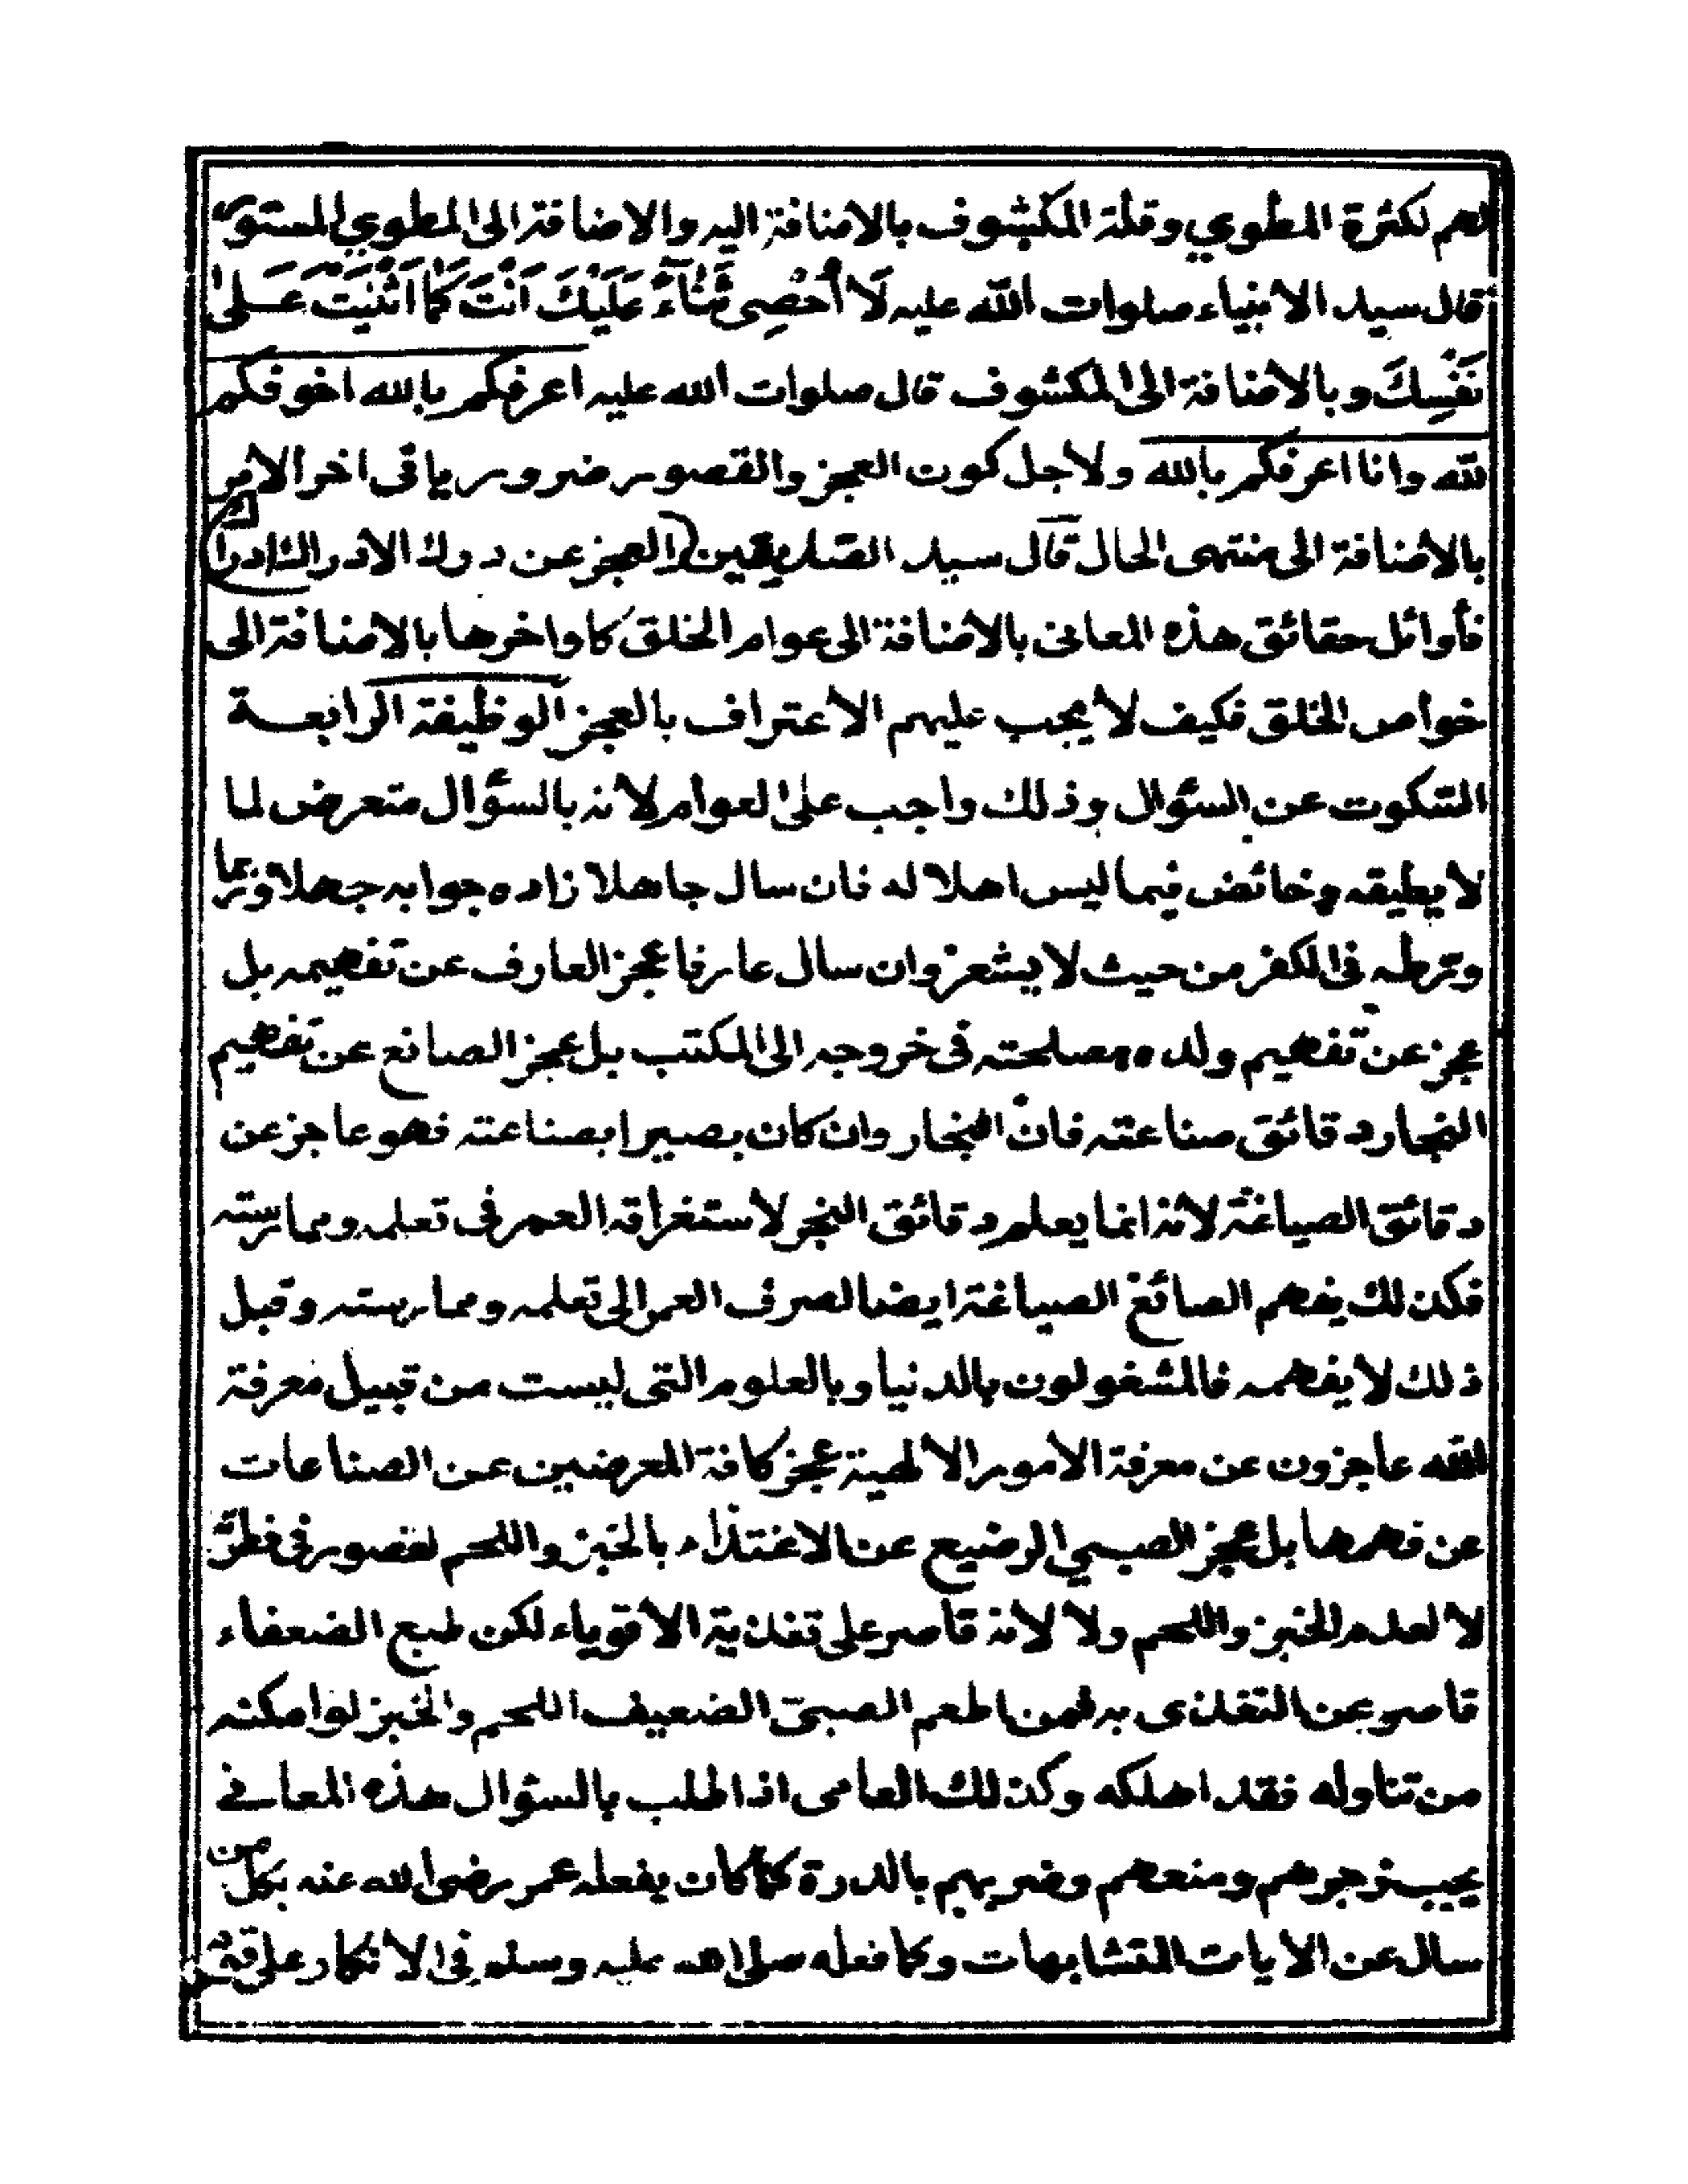 لهم لكثرة المطوي وقلة المكشوف بالاضافة اليه والاضافة الى المطوي المستور
قال سيد الانبياء صلوات الله عليه لَا أُحْصِى ثَنَاءً عَلَيْكَ اَنْتَ كَمَا اَثْنَيْتَ عَلىٰ
نَفْسِكَ وبالاضافة الى المكشوف قال صلوات الله عليه اعرفكم بالله اخوفكم
لله وانا اعرفكم بالله ولاجل كون العجز والقصور ضروريا فى اخر الامر
بالاضافة الى منتهى الحال قال سيد الصديقين العجز عن درك الادراك ادراك
فأوائل حقائق هذه المعانى بالاضافة الى عوام الخلق كاواخرها بالاضافة الى
خواص الخلق فكيف لا يجب عليهم الاعتراف بالعجز الوظيفة الرابعة
السكوت عن السؤال وذلك واجب على العوام لانه بالسؤال متعرض لما
لا يطيقه وخائض فيما ليس اهلا له فان سال جاهلا زاده جوابه جهلا وربما
ورطه فى الكفر من حيث لا يشعر وان سال عارفا عجز العارف عن تفهيمه بل
عجز عن تفهيم ولده مصلحته فى خروجه الى المكتب بل عجز الصانع عن تفهيم
النجار دقائق صناعته فان النجار وان كان بصيرا بصناعته فهو عاجز عن
دقائق الصياغة لانه انما يعلم دقائق النجر لاستغراقه العمر فى تعلمه وممارسته
فكذلك يفهم الصائغ الصياغة ايضا لصرف العمر الى تعلمه وممارسته وقبل
ذلك لا يفهمه فالمشغولون بالدنيا وبالعلوم التى ليست من قبيل معرفة
الله عاجزون عن معرفة الامور الالهية عجز كافة المعرضين عن الصناعات
عن فهمها بل عجز الصبي الرضيع عن الاغتذاء بالخبز واللحم لقصور فى فطرته
لا لعدم الخبز واللحم ولا لانه قاصر على تغذية الاقوياء لكن طبع الضعفاء
قاصر عن التغذى به فمن اطعم الصبى الضعيف اللحم والخبز او امكنه
من تناوله فقد اهلكه وكذلك العامى اذا طلب بالسؤال هذه المعانى
يجب زجرهم ومنعهم وضربهم بالدرة كما كان يفعله عمر رضى الله عنه بكل من
سال عن الايات المتشابهات وكما فعله صلى الله عليه وسلم فى الانكار على قوم